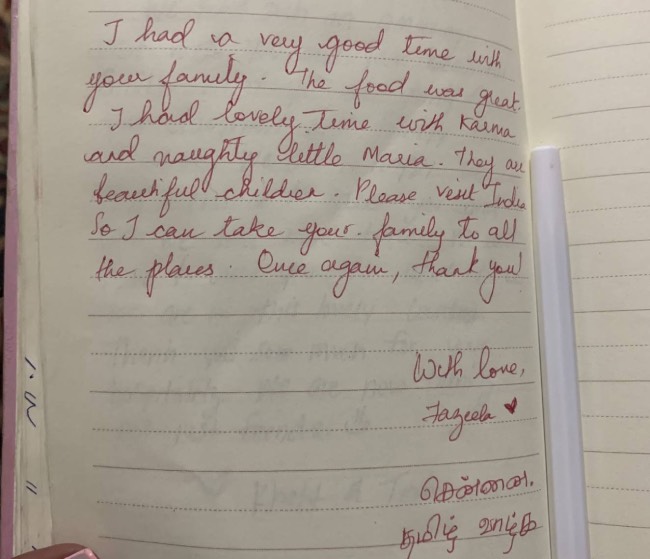 I had a very good time with
your family. The food was great.
I had lovely Time with Karma
and naughty little Maria. They are
beautiful children. Please visit India
So I can take your. family to all
the places. Once again, thank you!
With love,
Fazeela ♥
சென்னை.
தமிழ் வாழ்க